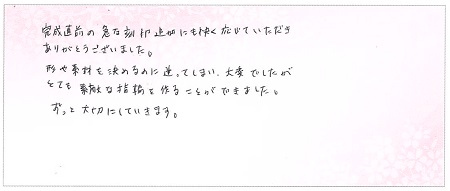 完成直前の急な刻印追加にも快く応じていただき
ありがとうございました。
形や素材を決めるのに迷ってしまい、大変でしたが
とても素敵な指輪を作ることができました。
ずっと大切にしていきます。